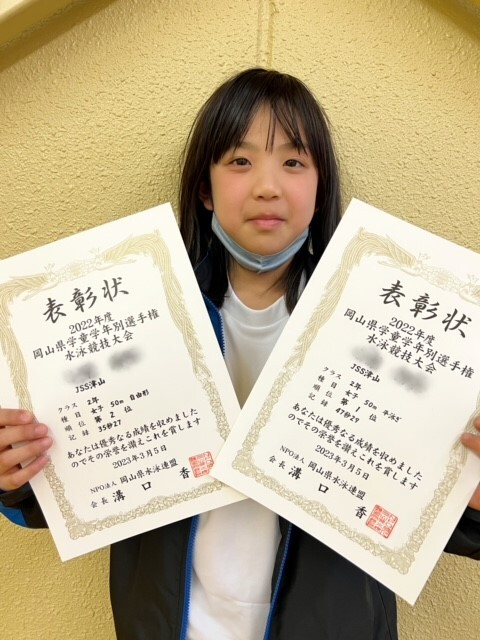 表彰状
2022年度
岡山県学童学年別選手権
水泳競技大会
JSS津山
クラス 2年
種目 女子 50m 自由形
順位 第 2 位
記録 35秒27
あなたは優秀なる成績を収めました
のでその栄誉を讃えこれを賞します
2023年3月5日
NPO法人 岡山県水泳連盟
会長 溝口 香
表彰状
2022年度
岡山県学童学年別選手権
水泳競技大会
JSS津山
クラス 2年
種目 女子 50m 平泳ぎ
順位 第 1 位
記録 47秒29
あなたは優秀なる成績を収めました
のでその栄誉を讃えこれを賞します
2023年3月5日
NPO法人 岡山県水泳連盟
会長 溝口 香